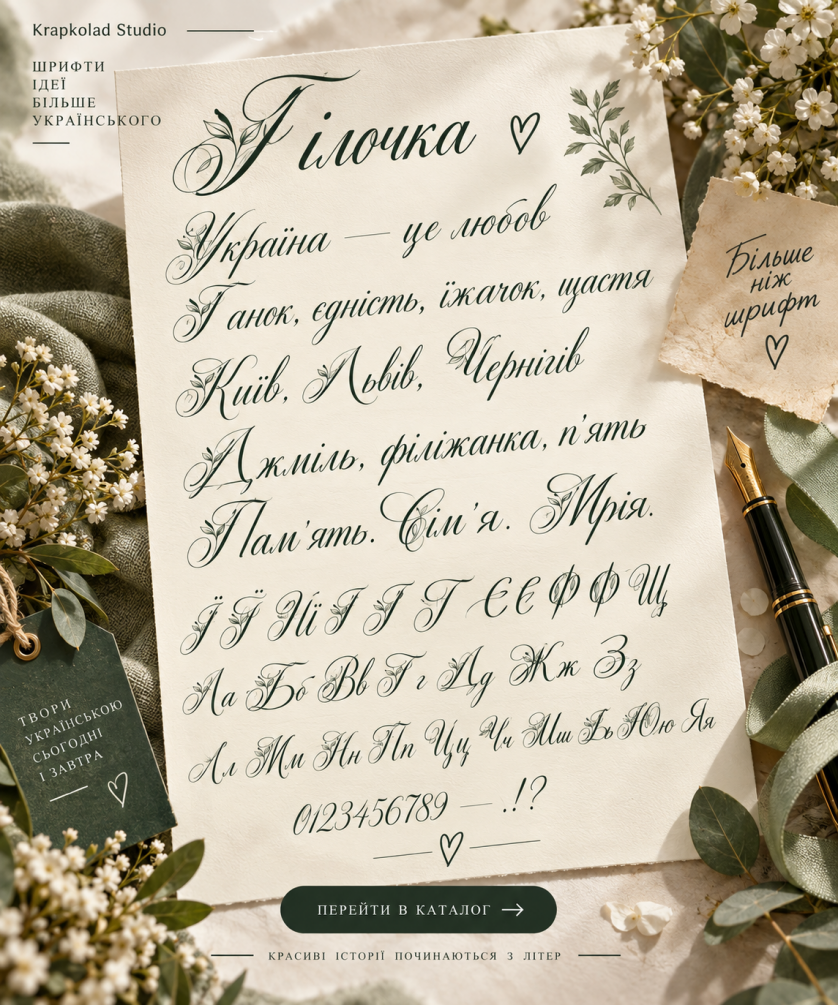 Krapkolad Studio
ШРИФТИ
ІДЕЇ
БІЛЬШЕ
УКРАЇНСЬКОГО
Гілочка
Україна — це любов
Ґанок, єдність, їжачок, щастя
Київ, Львів, Чернігів
Джміль, філіжанка, п'ять
Пам'ять. Сім'я. Мрія.
Аа Бб Вв Гг Дд Жж Зз
0123456789 — .!?
Більше
ніж
шрифт
ТВОРИ
УКРАЇНСЬКОЮ
СЬОГОДНІ
І ЗАВТРА
ПЕРЕЙТИ В КАТАЛОГ →
КРАСИВІ ІСТОРІЇ ПОЧИНАЮТЬСЯ З ЛІТЕР